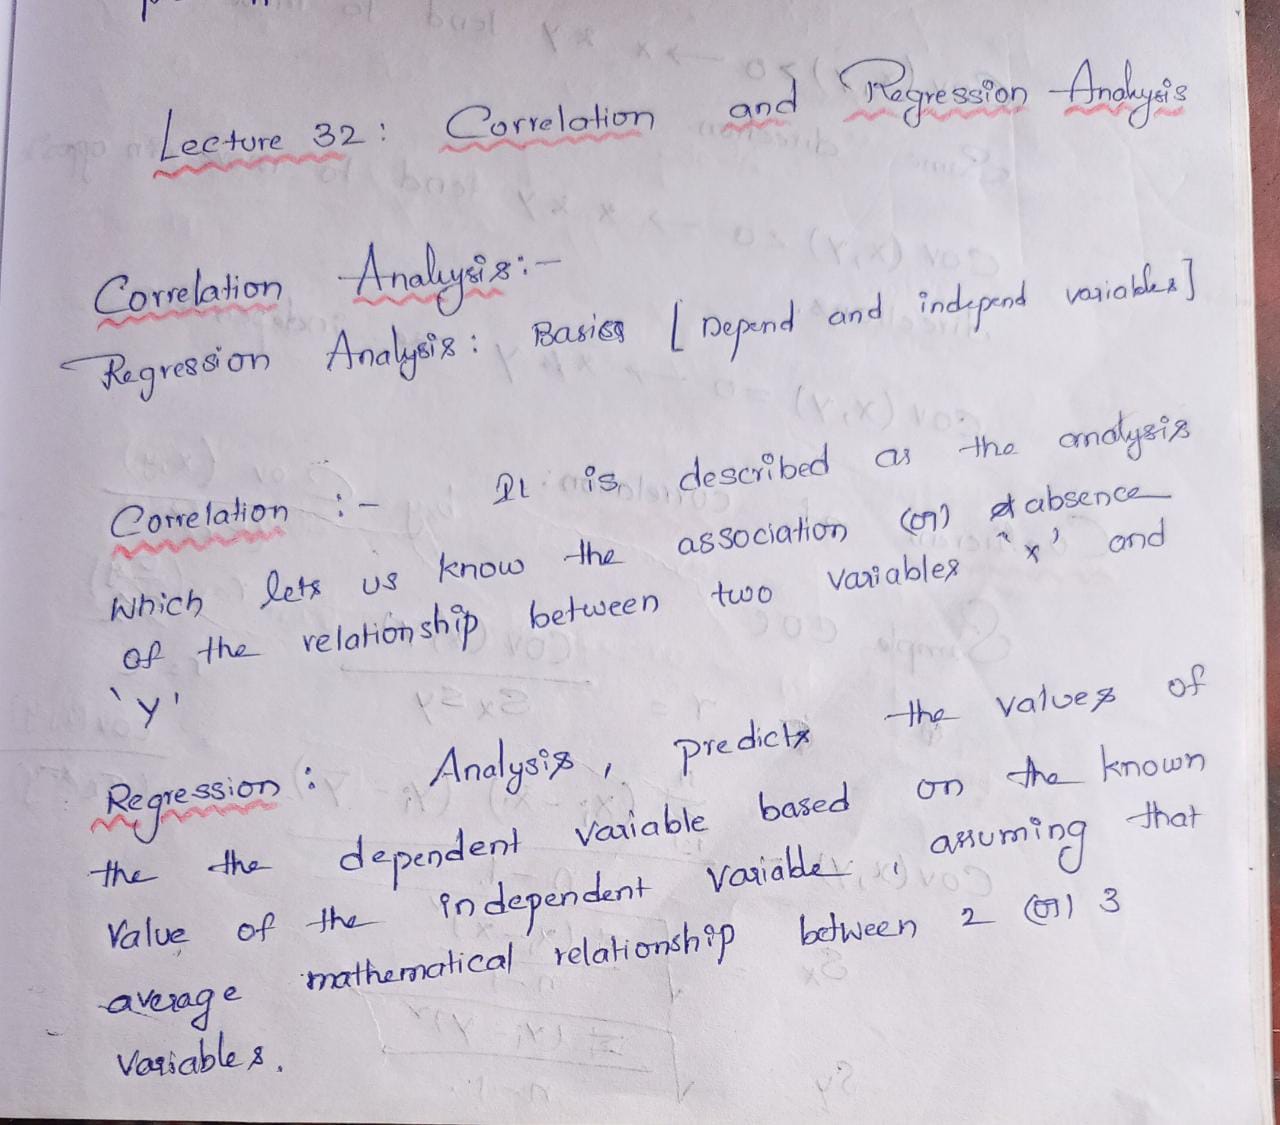 Lecture 32: Correlation and Regression Analysis
Correlation Analysis:-
Regression Analysis: Basics [Depend and independ variables]
Correlation :- It is described as the analysis
which lets us know the association (or) absence
of the relationship between two variables 'x' and
'y'
Regression: Analysis, predicts the values of
the the dependent variable based on the known
value of the independent variable, assuming that
average mathematical relationship between 2 (or) 3
variables.